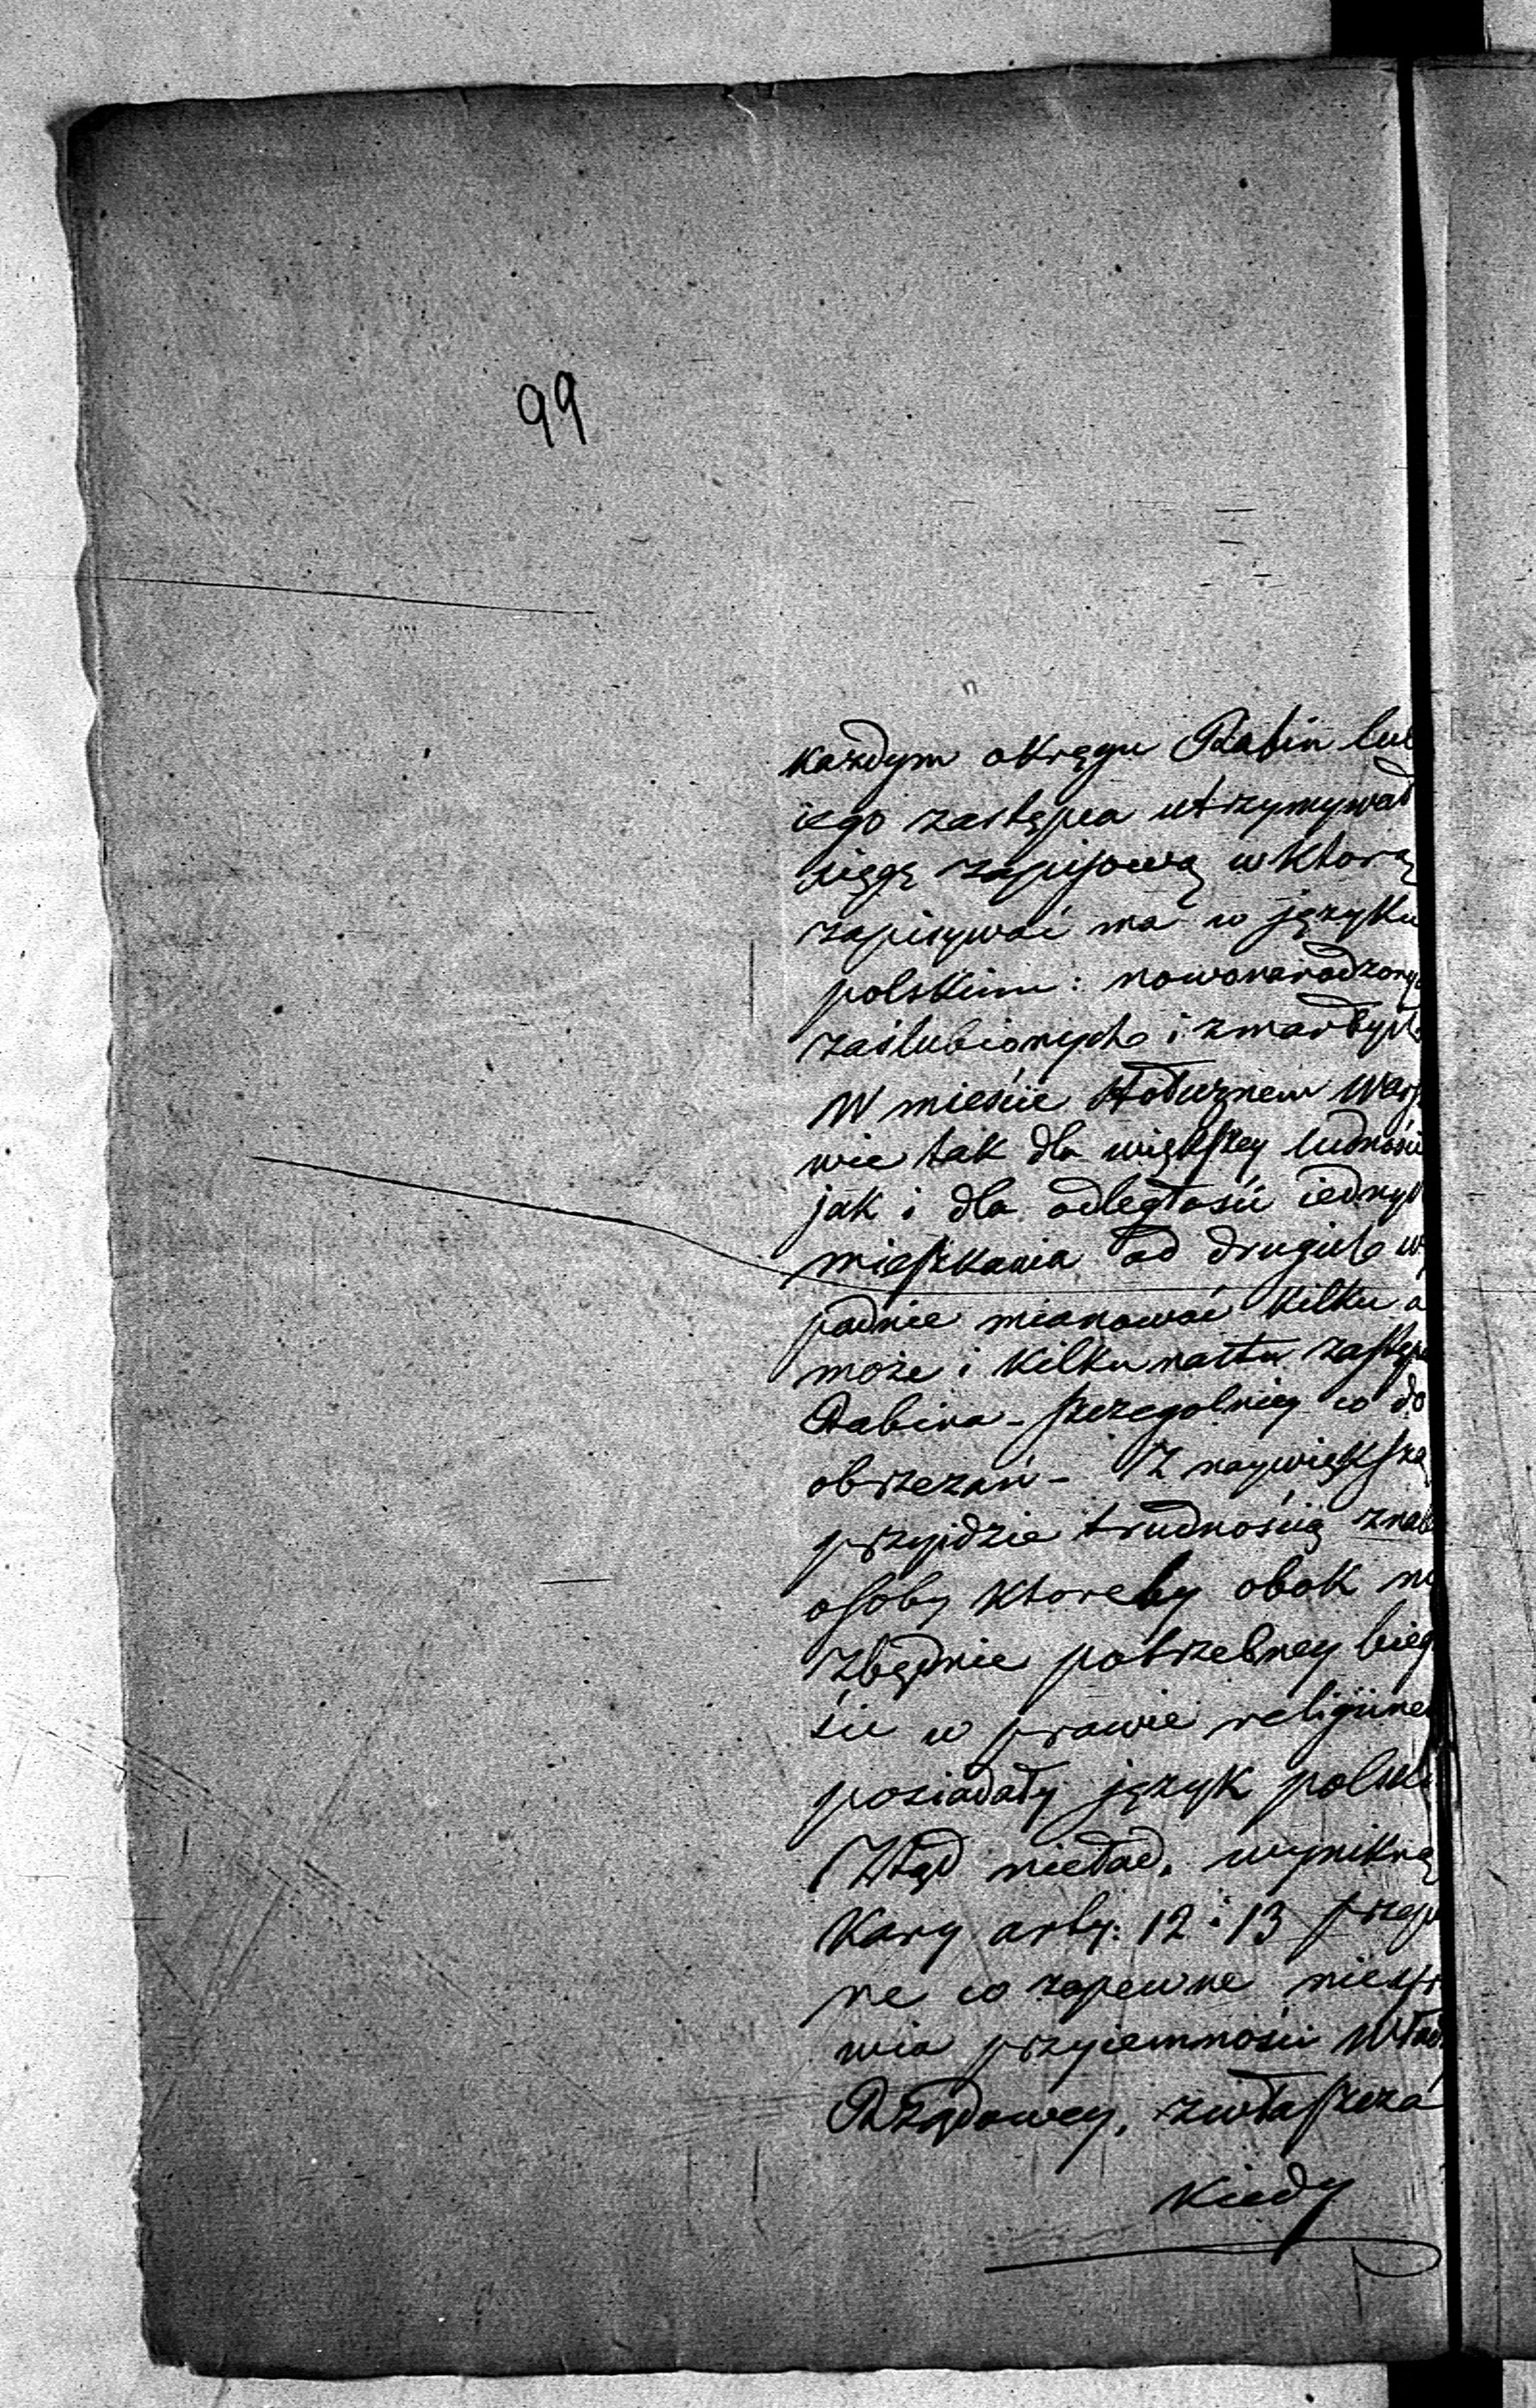 99
każdym okręgu Rabin lub
iego zastępca utrzymywał
sięgę zapisową w którą
zapisywać ma w języku
polskim: nowonarodzony
zaślubionych i zmarłych
W mieście stołecznem Wars
wie tak dla większey ludności
jak i dla odległości iednych
mieszkania od drugich w
padnie mianować kilku a
może i kilkunastu zastęp
Rabina - szczególniey co do
obrzezań - Z naywiększą
przyidzie trudnością znal
osoby któreby obok ni
zbędnie potrzebney bieg
ści w prawie religiine
posiadały język polski
Ztąd nieład, wynikną
Kary arty: 12 i 13 przep
ne co zapewne niespr
wia przyiemności Wład
Rządowey, zwłaszcza
kiedy